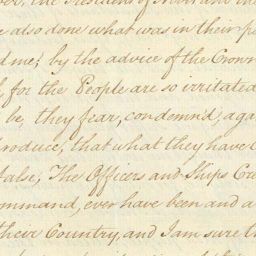 the President of
also done what was in their p
d me; by the advice of the Crown
for the People are so irritated
be, they fear, condemn'd, aga
roduce, that what they have
false; The Officers and Ships Cre
ommand, ever have been and a
their Country, and I am sure th